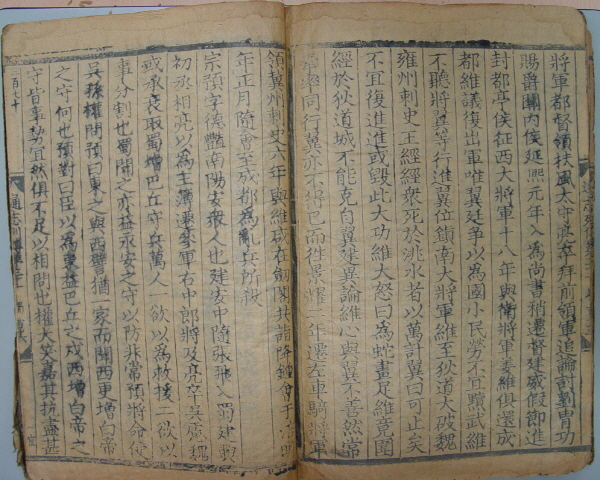 將軍都督領扶風太守亮卒拜前領軍追論討劉冑功
賜爵關內侯延熙元年入為尚書稍遷督建威假節進
封都亭侯征西大將軍十八年與衛將軍姜維俱還成
都維議復出軍唯翼廷爭以為國小民勞不宜黷武維
不聽將翼等行進翼位鎮南大將軍維至狄道大破魏
雍州刺史王經經衆死於洮水者以萬計翼曰可止矣
不宜復進進或毀此大功維大怒曰為蛇畫足維竟圍
經於狄道城不能克自翼建異論維心與翼不善然常
牽率同行翼亦不得已而往景耀二年遷左車騎將軍
領冀州刺史六年與維咸在劍閣共詣降鍾會于涪明
年正月隨會至成都為亂兵所殺
宗預字德豔南陽安衆人也建安中隨張飛入蜀建興
初丞相亮以為主簿遷參軍右中郎將及亮卒吳慮魏
或承衰取蜀增巴丘守兵萬人一欲以為救援二欲以
事分割也蜀聞之亦益永安之守以防非常預將命使
吳孫權問預曰東之與西譬猶一家而聞西更增白帝
之守何也預對曰臣以為東益巴丘之戍西增白帝之
守皆事勢宜然俱不足以相問也權大笑嘉其抗盡甚